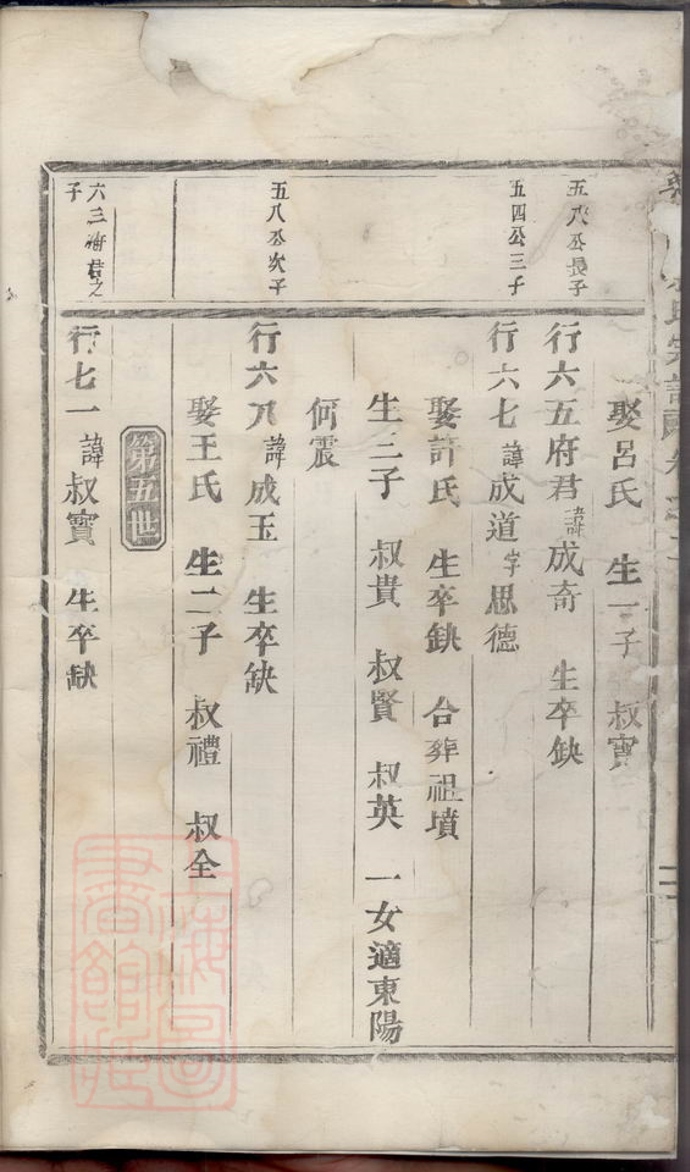 娶呂氏 生一子 叔寶
五八公長子
行六五府君諱成奇 生卒缺
五四公三子
行六七諱成道字思德
娶許氏 生卒缺 合葬祖墳
生三子 叔貴 叔賢 叔英 一女適東陽
何震
五八公次子
行六八諱成玉 生卒缺
娶王氏 生二子 叔禮 叔全
第五世
六三府君之子
行七一諱叔寶 生卒缺
上海圖書館藏